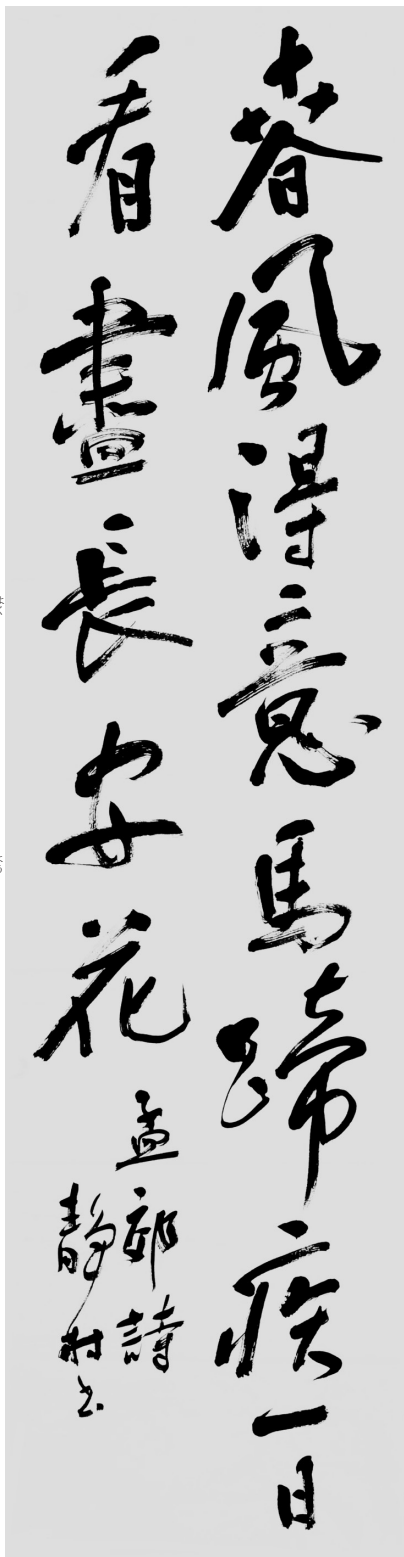 春風得意馬蹄疾一日
看盡長安花
孟郊詩
靜村书